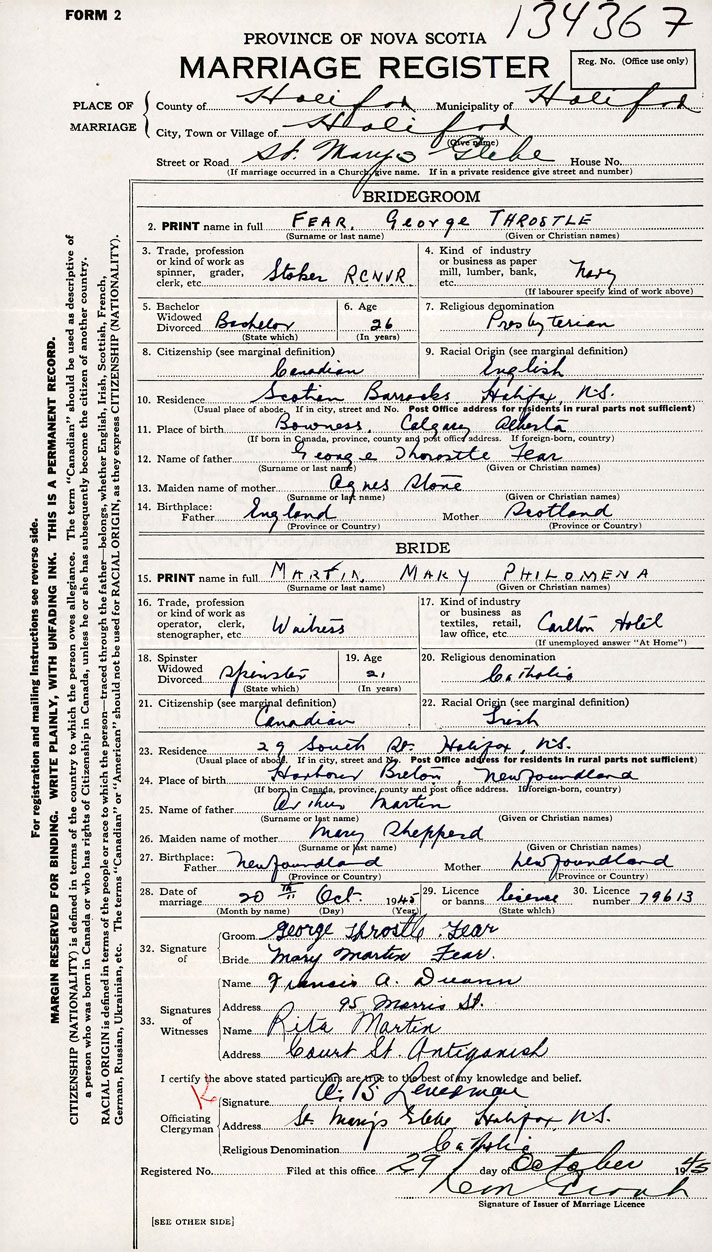 FORM 2
134367
PROVINCE OF NOVA SCOTIA
MARRIAGE REGISTER
Reg. No. (Office use only)
PLACE OF MARRIAGE
County of Halifax Municipality of Halifax
City, Town or Village of Halifax
(Give name)
Street or Road St. Mary's Glebe House No.
(If marriage occurred in a Church, give name. If in a private residence give street and number)
BRIDEGROOM
2. PRINT name in full FEAR, George THROSTLE
(Surname or last name) (Given or Christian names)
3. Trade, profession or kind of work as spinner, grader, clerk, etc. Stoker RCNVR
4. Kind of industry or business as paper mill, lumber, bank, etc. Navy
(If labourer specify kind of work above)
5. Bachelor Widowed Divorced Bachelor
(State which)
6. Age 26
(In years)
7. Religious denomination
Presbyterian
8. Citizenship (see marginal definition)
Canadian
9. Racial Origin (see marginal definition)
English
10. Residence Scotian Barracks Halifax, N.S.
(Usual place of abode. If in city, street and No. Post Office address for residents in rural parts not sufficient)
11. Place of birth Bowness, Calgary Alberta
(If born in Canada, province, county and post office address. If foreign-born, country)
12. Name of father George Throstle Fear
(Surname or last name) (Given or Christian names)
13. Maiden name of mother Agnes Stone
(Surname or last name) (Given or Christian names)
14. Birthplace: Father England Mother Scotland
(Province or Country) (Province or Country)
BRIDE
15. PRINT name in full MARTIN, MARY PHILOMENA
(Surname or last name) (Given or Christian names)
16. Trade, profession or kind of work as operator, clerk, stenographer, etc. Waitress
17. Kind of industry or business as textiles, retail, law office, etc. Carlton Hotel
(If unemployed answer "At Home")
18. Spinster Widowed Divorced Spinster
(State which)
19. Age 21
(In years)
20. Religious denomination
Catholic
21. Citizenship (see marginal definition)
Canadian
22. Racial Origin (see marginal definition)
Irish
23. Residence 29 South St. Halifax, N.S.
(Usual place of abode. If in city, street and No. Post Office address for residents in rural parts not sufficient)
24. Place of birth Harbour Breton, Newfoundland
(If born in Canada, province, county and post office address. If foreign-born, country)
25. Name of father Arthur Martin
(Surname or last name) (Given or Christian names)
26. Maiden name of mother Mary Shepperd
(Surname or last name) (Given or Christian names)
27. Birthplace: Father Newfoundland Mother Newfoundland
(Province or Country) (Province or Country)
28. Date of marriage 20TH Oct. 1945
(Month by name) (Day) (Year)
29. Licence or banns license
(State which)
30. Licence number 79613
32. Signature of
Groom George Throstle Fear
Bride Mary Martin Fear.
33. Signatures of Witnesses
Name Francis A.
Address 95 Morris St.
Name Rita Martin
Address Court St. Antigonish
I certify the above stated particulars are true to the best of my knowledge and belief.
Officiating Clergyman
Signature
Address St. Mary's Glebe Halifax, N.S.
Religious Denomination Catholic
Registered No. Filed at this office 29 day of October 1945
Signature of Issuer of Marriage Licence
[SEE OTHER SIDE]
For registration and mailing instructions see reverse side.
MARGIN RESERVED FOR BINDING. WRITE PLAINLY, WITH UNFADING INK. THIS IS A PERMANENT RECORD.
CITIZENSHIP (NATIONALITY) is defined in terms of the country to which the person owes allegiance. The term "Canadian" should be used as descriptive of
a person who was born in Canada or who has rights of Citizenship in Canada, unless he or she has subsequently become the citizen of another country.
RACIAL ORIGIN is defined in terms of the people or race to which the person—traced through the father—belongs, whether English, Irish, Scottish, French,
German, Russian, Ukrainian, etc. The terms "Canadian" or "American" should not be used for RACIAL ORIGIN, as they express CITIZENSHIP (NATIONALITY).